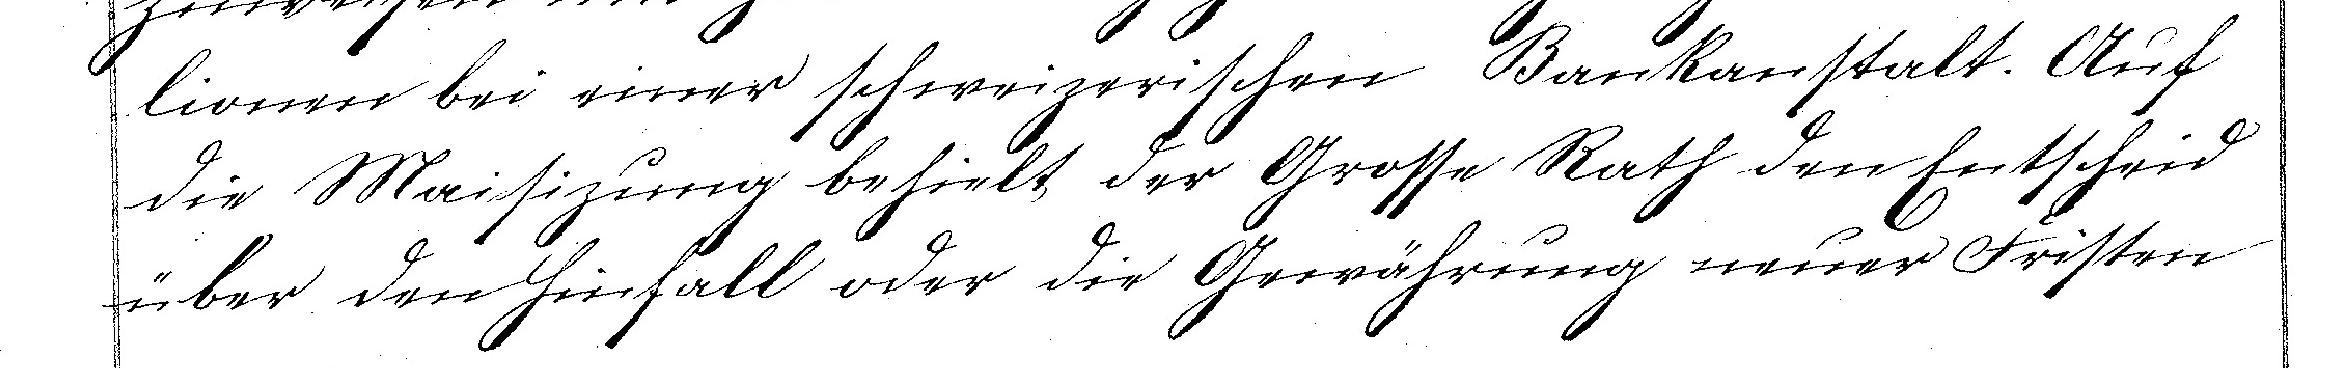 lionen bei einer schweizerischen Bankanstalt. Auf
die Maisizung behielt der Grosse Rath den Entscheid
über den Hinfall oder die Gewährung neuer Fristen